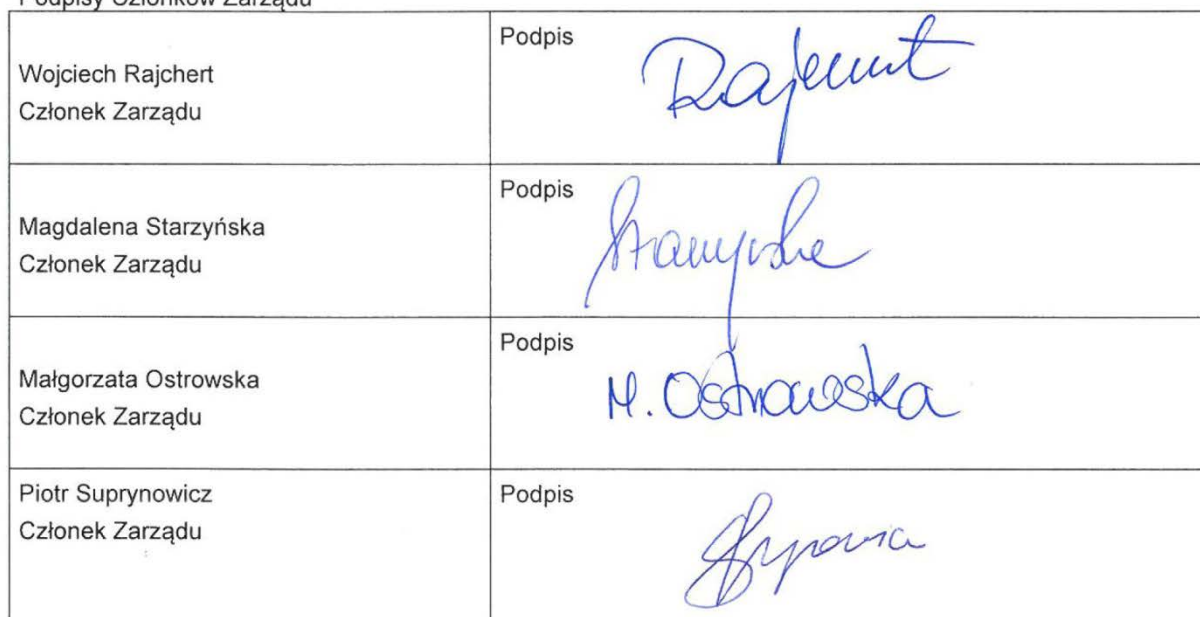 Podpisy Członków Zarządu
Wojciech Rajchert
Członek Zarządu
Podpis
Rajchert
Magdalena Starzyńska
Członek Zarządu
Podpis
Starzyńska
Małgorzata Ostrowska
Członek Zarządu
Podpis
M. Ostrowska
Piotr Suprynowicz
Członek Zarządu
Podpis